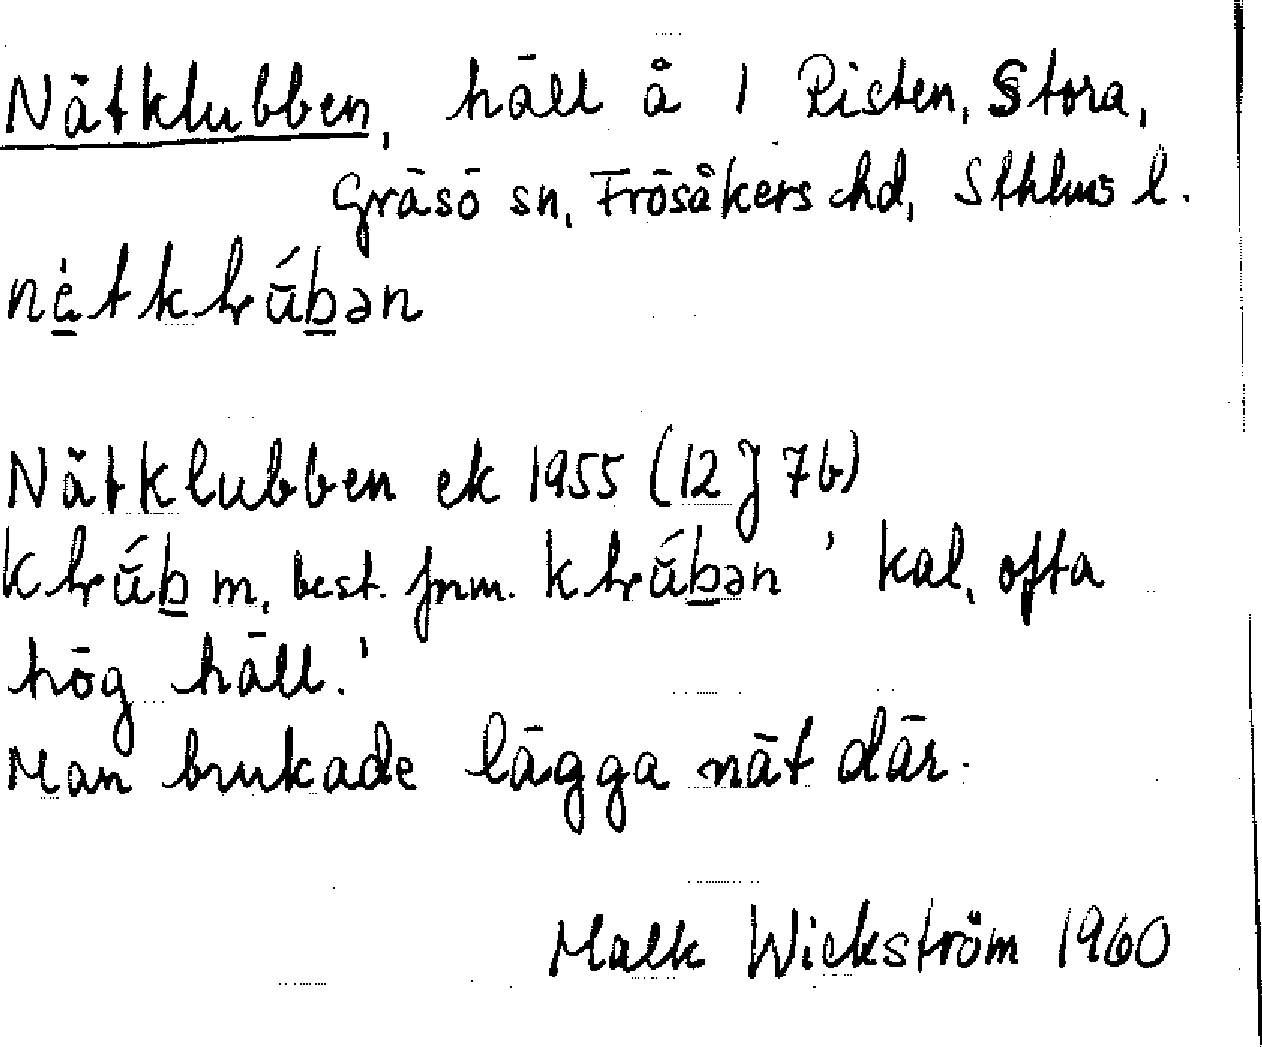 Nätklubben, häll å 1 Risten, Stora,
Gräsö sn, Frösåkers hd, Sthlms l.
Nätklubben ek 1955 (12 J 7b)
m, best. form. ' kal, ofta
hög häll.'
Man brukade lägga nät där.
Malk Wickström 1960